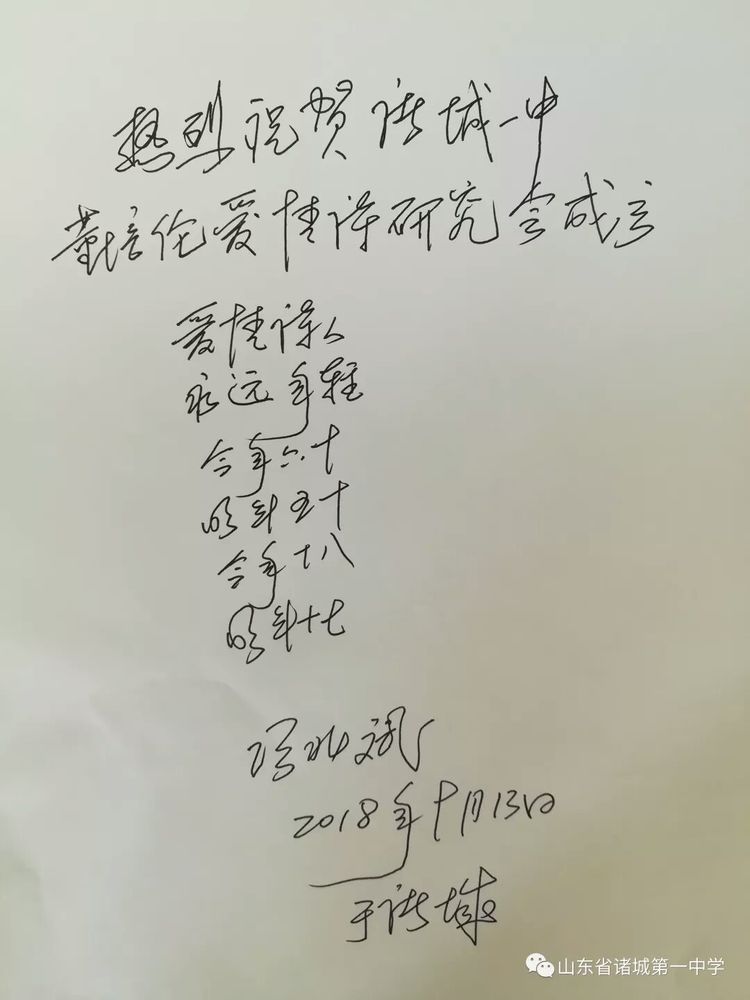 热烈祝贺诸城一中
董培伦爱情诗研究会成立
爱情诗人
永远年轻
今年六十
明年五十
今年十八
明年十七
2018年十月13日
于诸城
山东省诸城第一中学